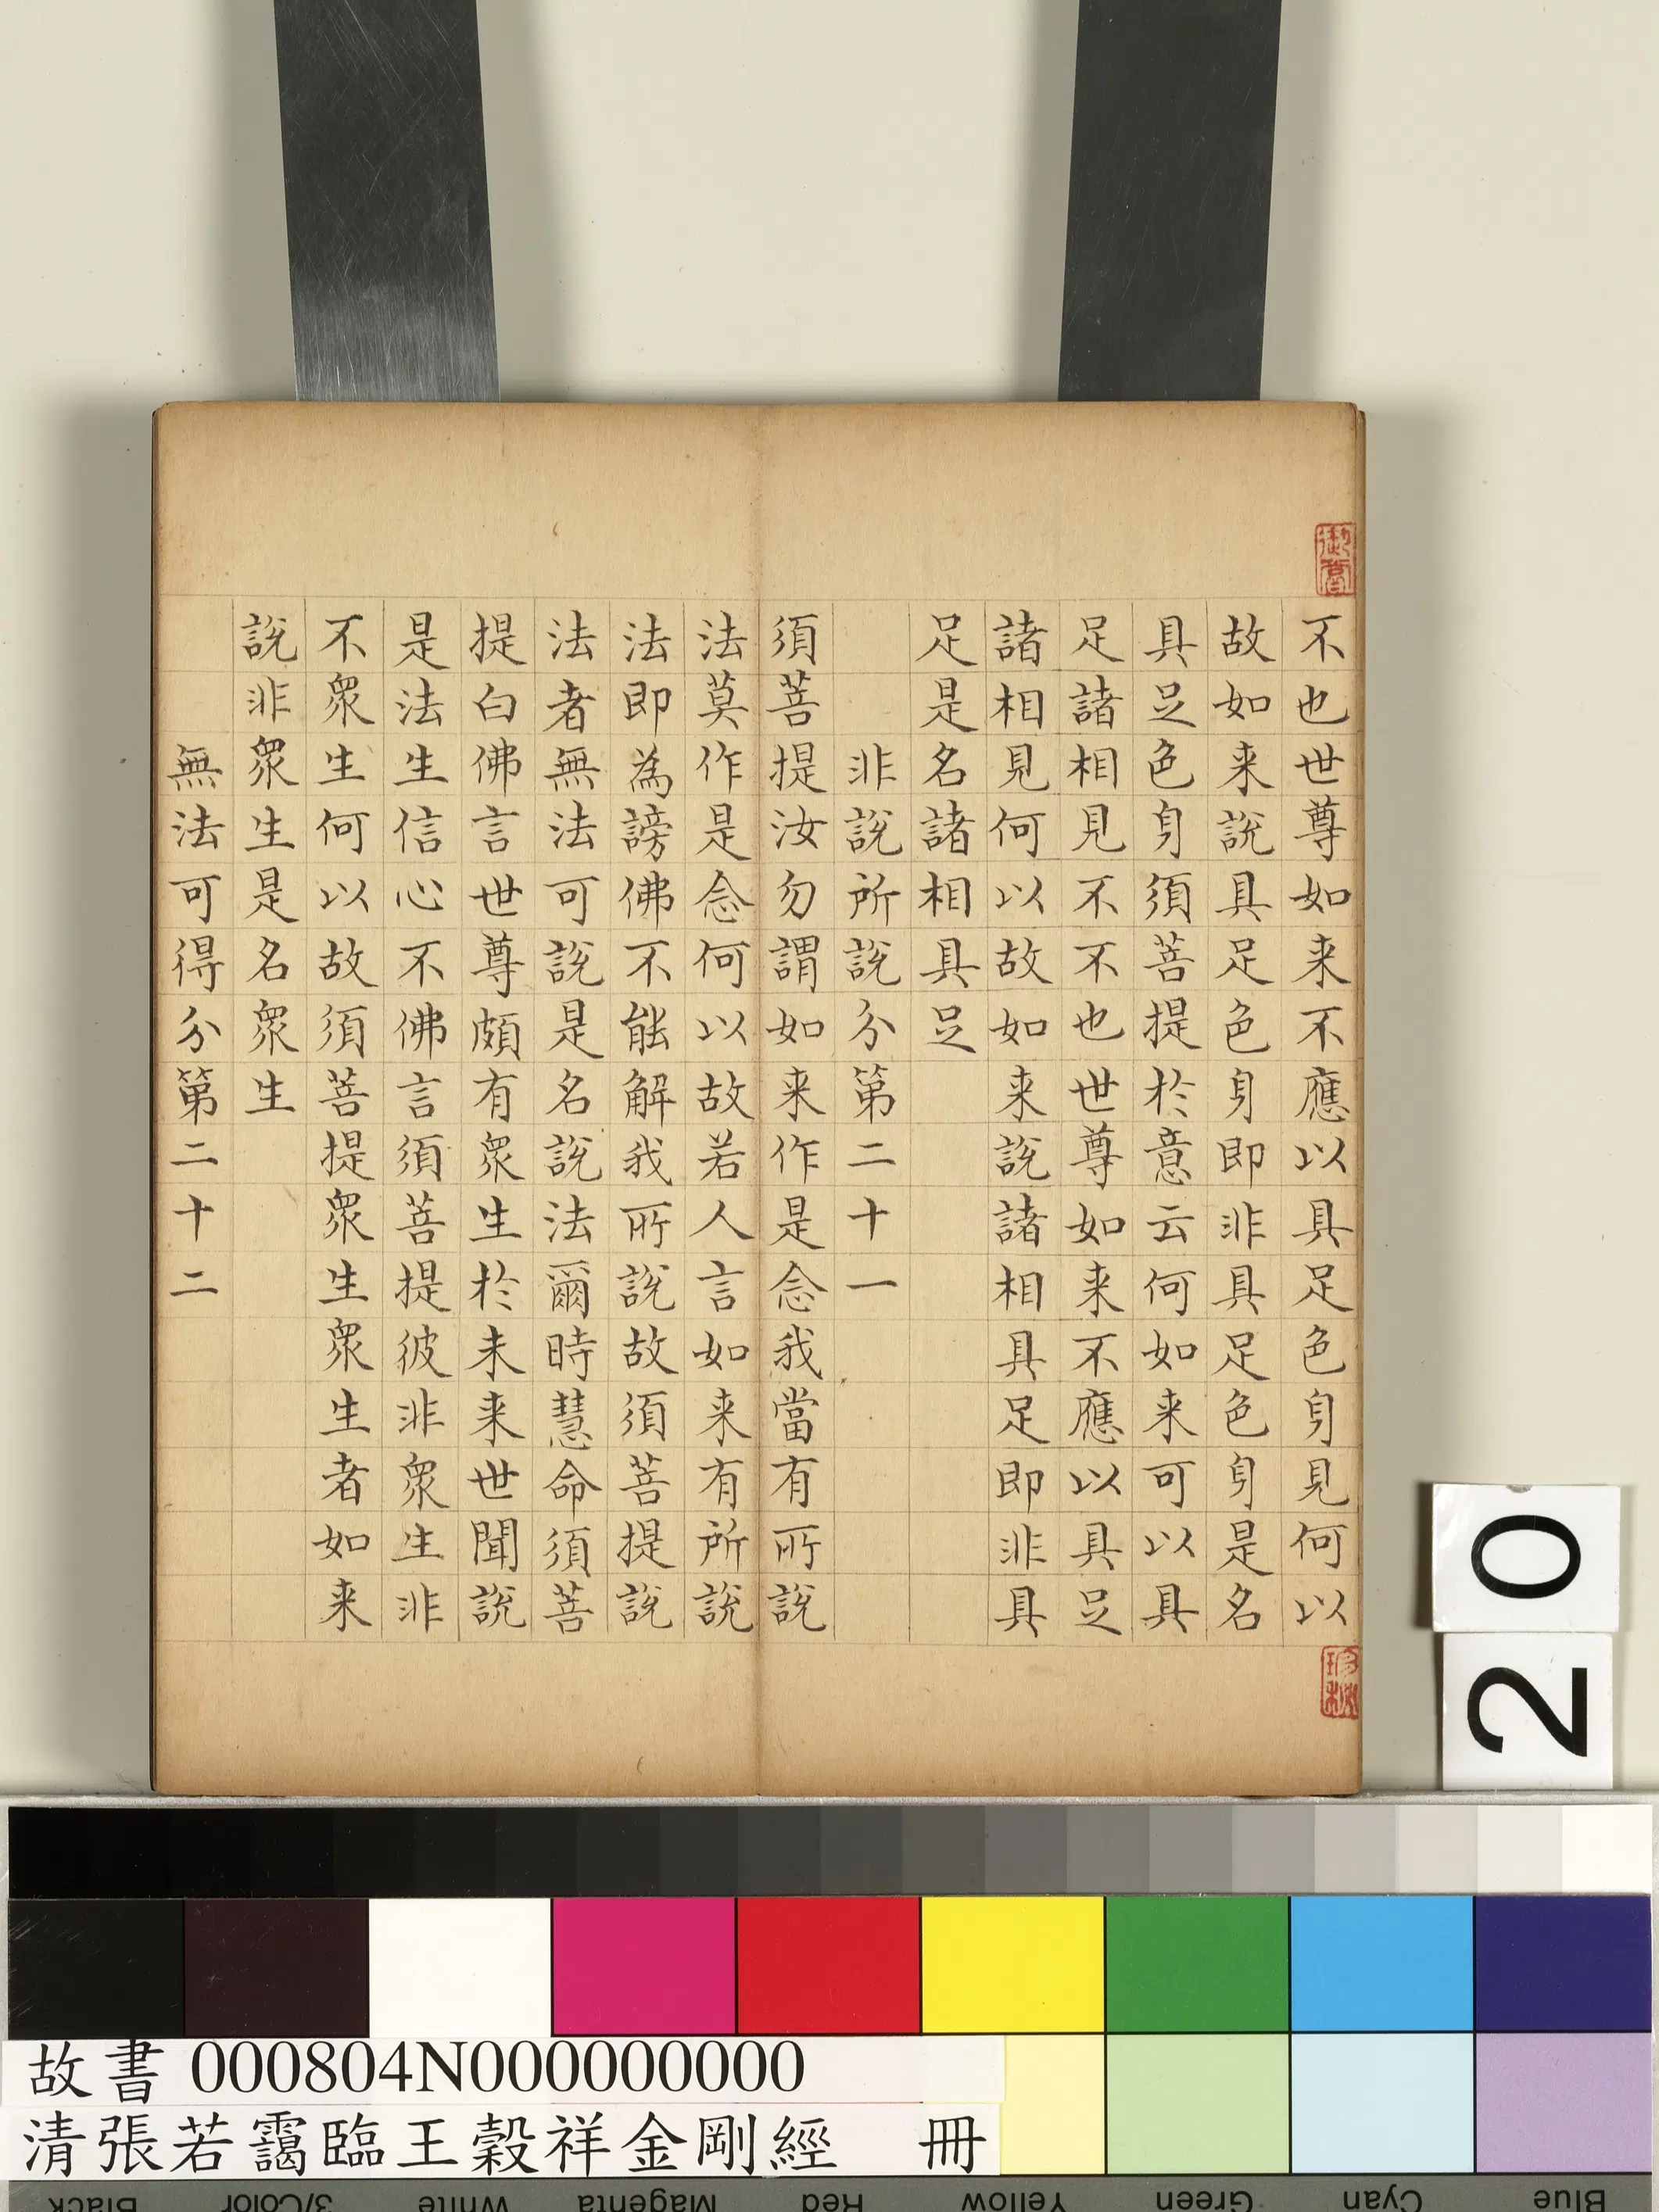 不也世尊如来不應以具足色身見何以
故如来說具足色身即非具足色身是名
具足色身須菩提於意云何如来可以具
足諸相見不不也世尊如来不應以具足
諸相見何以故如来說諸相具足即非具
足是名諸相具足
非說所說分第二十一
須菩提汝勿謂如来作是念我當有所說
法莫作是念何以故若人言如来有所說
法即為謗佛不能解我所說故須菩提說
法者無法可說是名說法爾時慧命須菩
提白佛言世尊頗有眾生於未来世聞說
是法生信心不佛言須菩提彼非眾生非
不眾生何以故須菩提眾生眾生者如来
說非眾生是名眾生
無法可得分第二十二
20
故書 000804N000000000
清張若靄臨王穀祥金剛經 冊
Black 3/Color White Magenta Red Yellow Green Cyan Blue